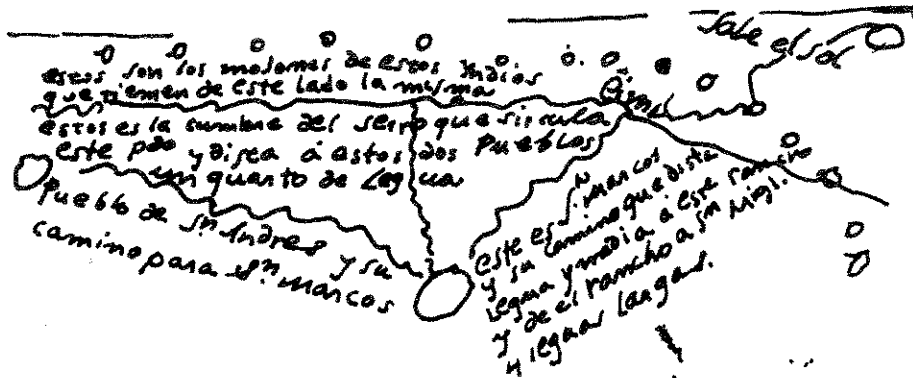 Sale el sol
estos son los mojones de estos Yndios
que tienen de este lado la misma
estos es la cumbre del serro que sircula
este pdo y disea á estos dos Pueblos
un quarto de Legua
Pueblo de Sn. Andres y su
camino para Sn. Marcos
este es Sn. Marcos
y su camino que dista
legua y media á este rancho
y de el rancho a Sn Migl.
4 leguas largas.